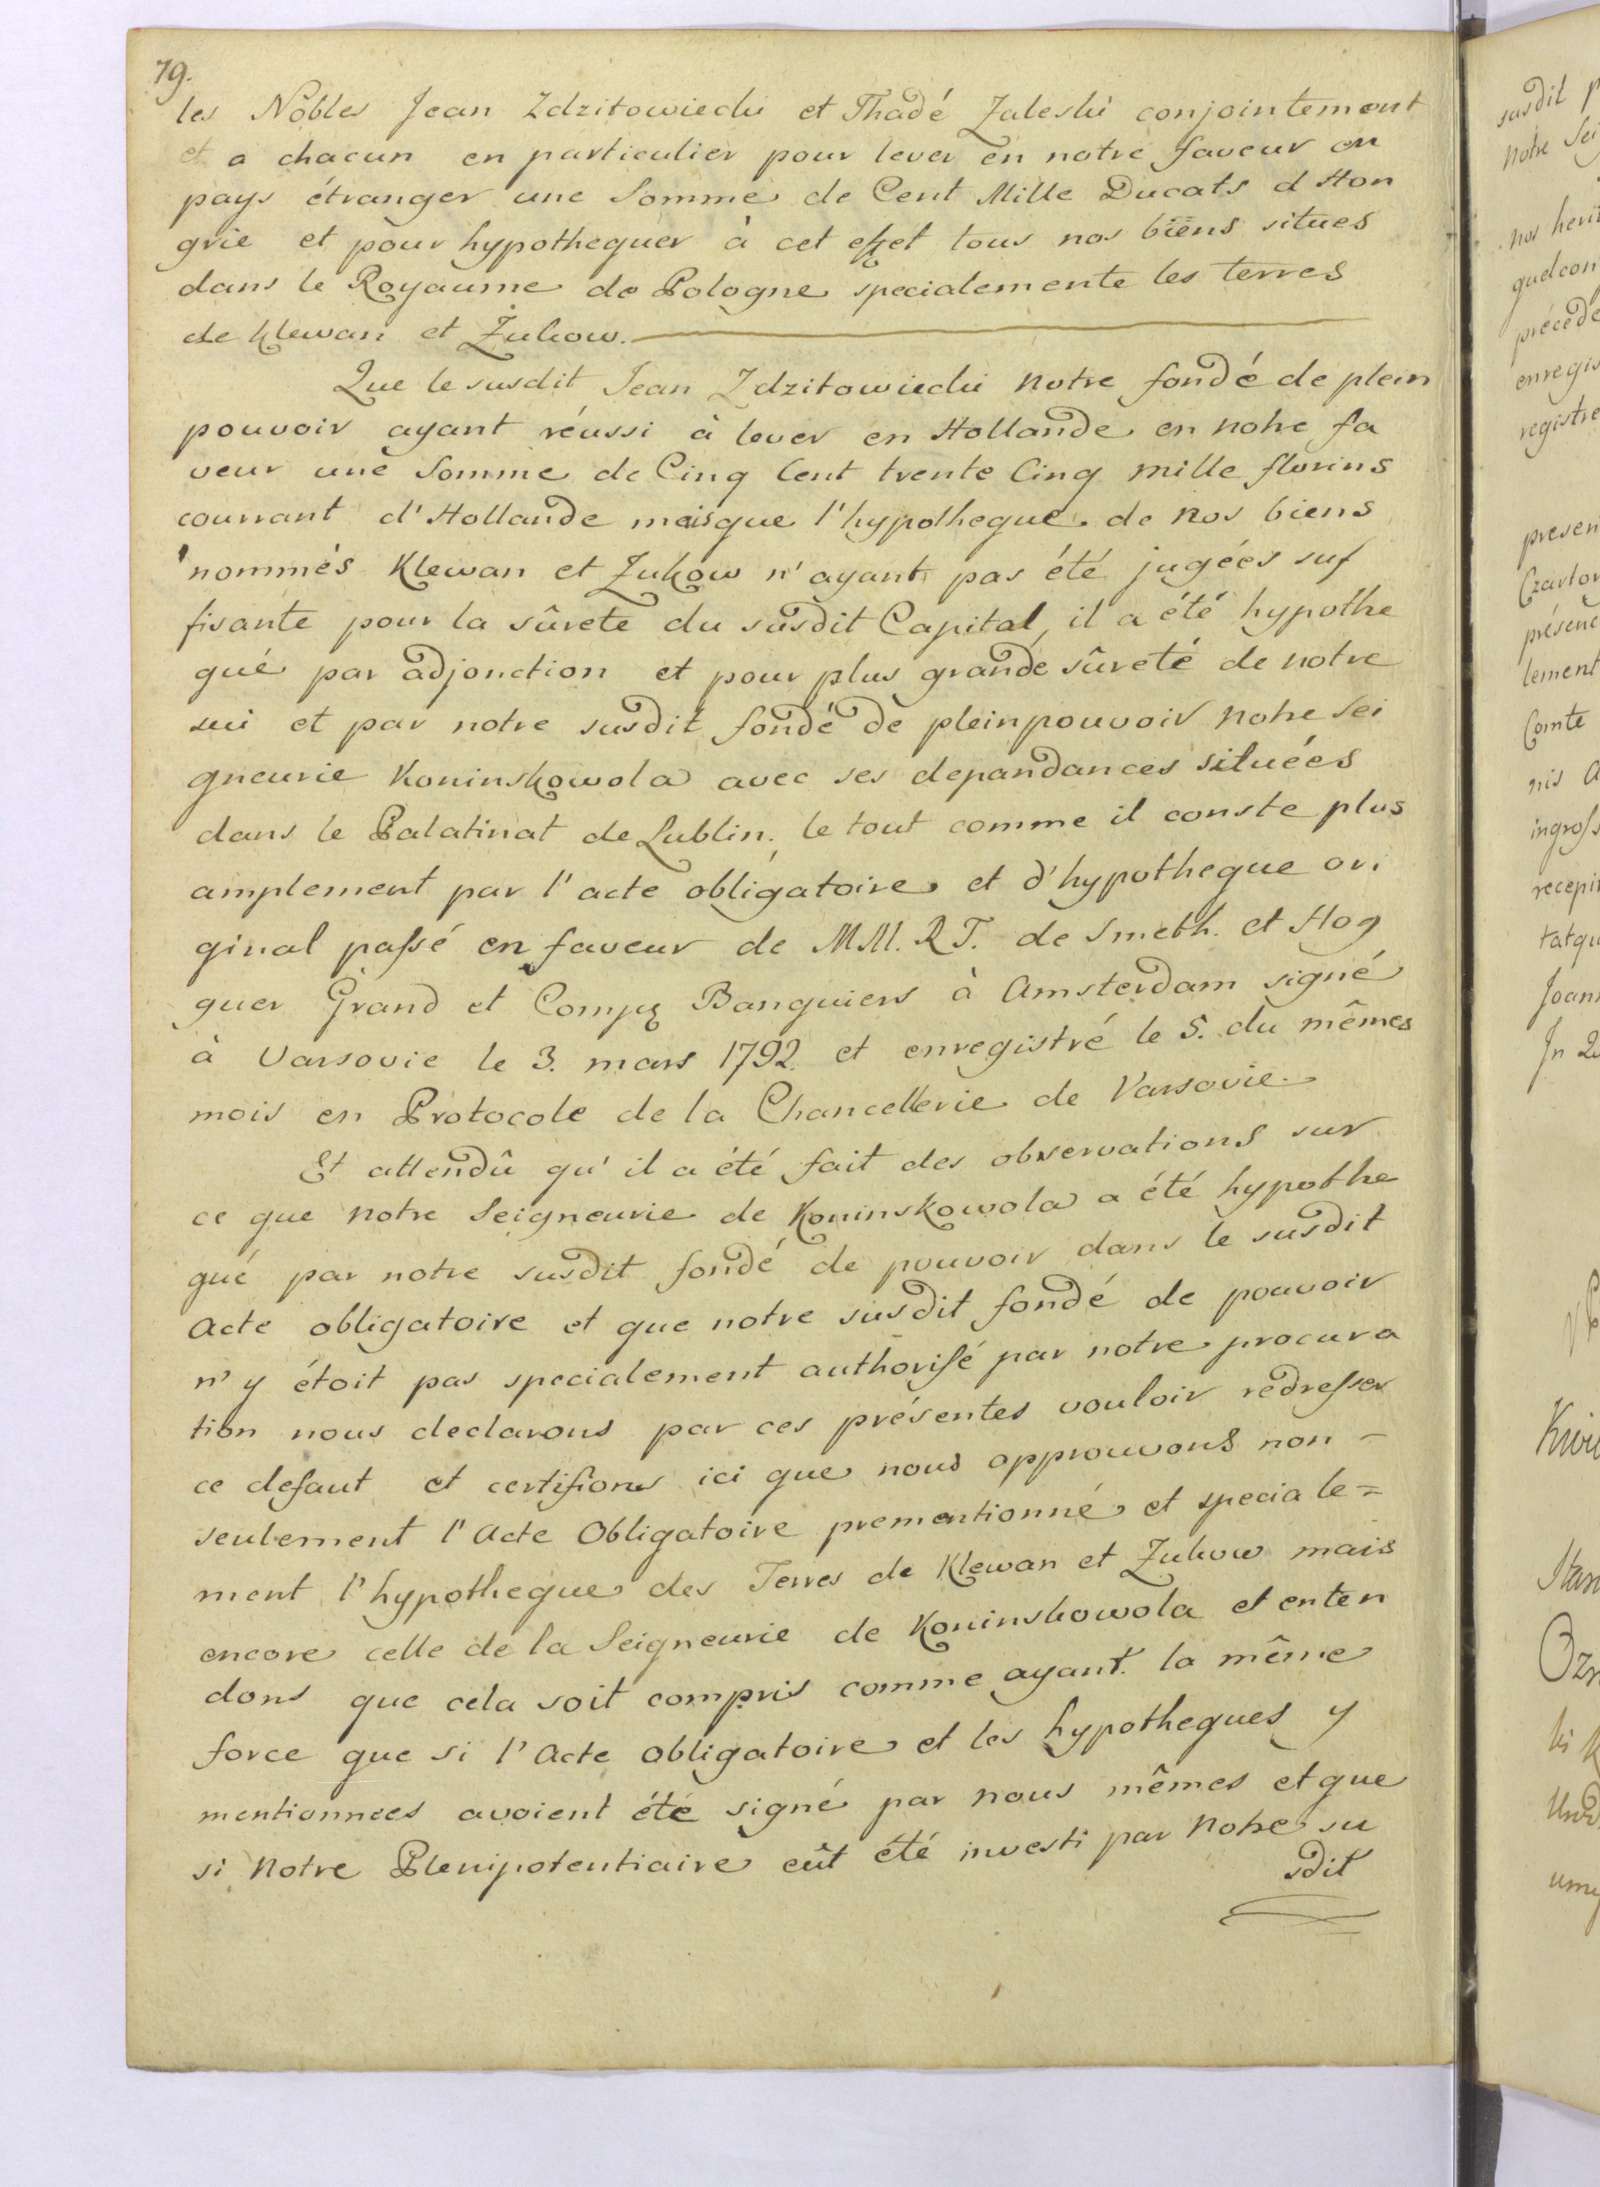 79.
les Nobles Jean Zdzitowiecki et Thadé Zaleski conjointement
et a chacun en particulier pour lever en notre faveur en
pays étranger une Somme de Cent Mille Ducats d Hon
grie et pour hypothequer à cet effet tous nos biens situes
dans le Royaume de Pologne specialemente les terres
de Klewan et Żukow.
Que le susdit Jean Zdzitowiecki notre fondé de plein
pouvoir ayant réussi à lever en Hollande en notre fa
veur une Somme de Cinq Cent trente Cinq mille florins
courrant d'Hollande mais que l'hypotheque de nos biens
nommés Klewan et Zukow n'ayant pas été jugées suf
fisante pour la sûrete du susdit Capital, il a été hypothe
qué par adjonction et pour plus grande sûreté de notre
sui et par notre susdit fondé de pleinpouvoir notre Sei
gneurie Koninskowola avec ses depandances situées
dans le Palatinat de Lublin. le tout comme il conste plus
amplement par l'acte obligatoire et d'hypotheque ori
ginal passé en faveur de MM. R T. de Smeth. et Hog
guer Grand et Comp Banquiers à Amsterdam signé
à Varsovie le 3. mars 1792. et enregistré le 5. du mêmes
mois en Protocole de la Chancellerie de Varsovie.
Et attendû qu'il a été fait des observations sur
ce que notre Seigneurie de Koninskowola a été hypothe
qué par notre susdit fondé de pouvoir dans le susdit
Acte obligatoire et que notre susdit fondé de pouvoir
n'y étoit pas specialement authorisé par notre procura
tion nous declarons par ces présentes vouloir redresser
ce defaut et certifions ici que nous approuvons non -
seulement l'Acte Obligatoire prementionné et speciale=
ment l'hypotheque des Terres de Klewan et Zukow mais
encore celle de la Seigneurie de Koninskowola et enten
dons que cela soit compris comme ayant la même
force que si l'Acte obligatoire et les hypotheques y
mentionnees avoient été signé par nous mêmes et que
si notre Plenipotentiaire eût été investi par notre su
sdit
susdit
notre Sei
nos heri
quelcon
précéde
enregis
registre
presen
Czartor
présenc
lement
Comte
nis
ingross
recepi
tatqu
Joan
In